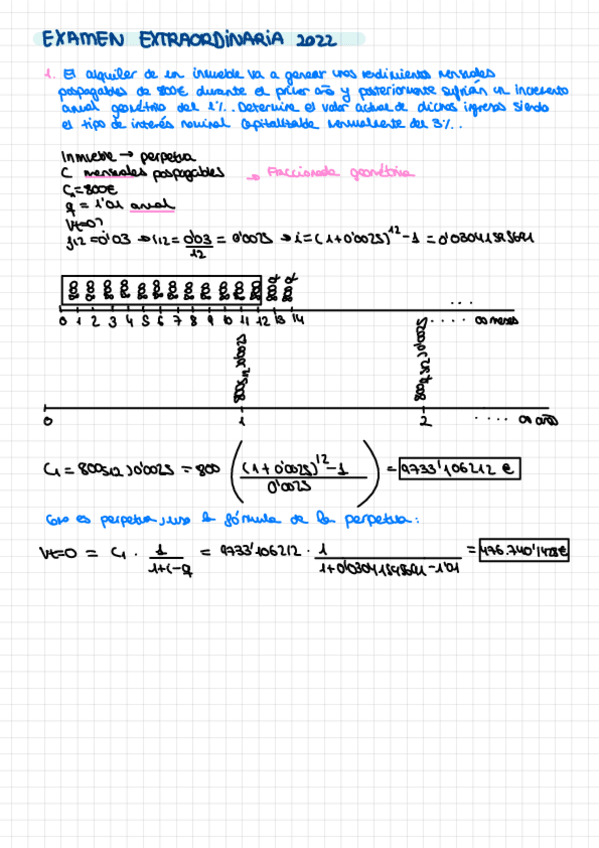 EXAMEN EXTRAORDINARIA 2022
1. El alquiler de un inmueble va a generar unos rendimientos mensuales
pospagables de 800€ durante el primer año y posteriormente sufrirán un incremento
anual geométrico del 1%. Determine el valor actual de dichos ingresos siendo
el tipo de interés nominal capitalizable mensualmente del 3%.
Inmueble → perpetua
C mensuales pospagables → Fraccionada geométrica
C1 = 800€
q = 1'01 anual
Vt=0?
j12 = 0'03 → i12 = 0'03/12 = 0'0025 → i = (1+0'0025)^12 - 1 = 0'0304159569
800 800 800 800 800 800 800 800 800 800 800 800 800q 800q
0 1 2 3 4 5 6 7 8 9 10 11 12 13 14 ... ∞ meses
800s12⌉0'0025 800qs12⌉0'0025
0 1 2 .... ∞ años
C1 = 800s12⌉0'0025 = 800 ((1+0'0025)^12 - 1 / 0'0025) = 9733'106212 €
Como es perpetua, uso la fórmula de la perpetua:
Vt=0 = C1 · 1/1+i-q = 9733'106212 · 1/